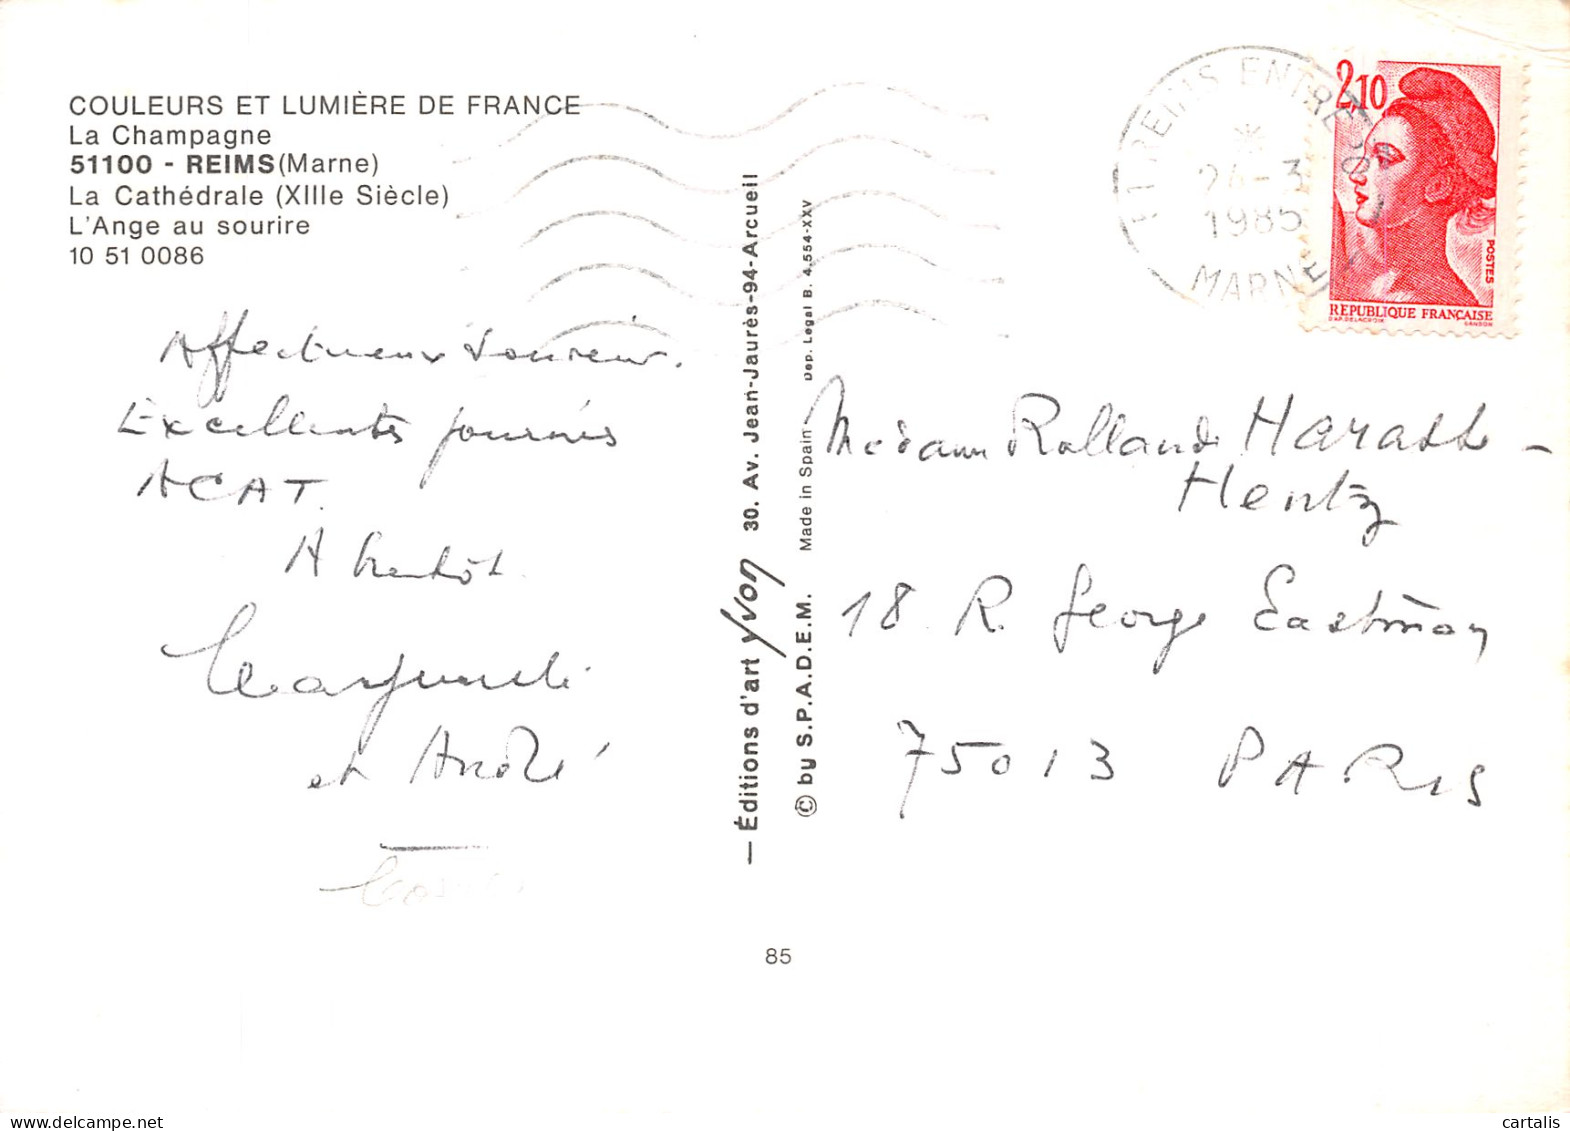 COULEURS ET LUMIÈRE DE FRANCE
La Champagne
51100 - REIMS (Marne)
La Cathédrale (XIIIe Siècle)
L'Ange au sourire
10 51 0086
Affectueux souvenir.
Excellentes journées
ACAT.
A bientôt
et André
— Éditions d'art Yvon 30. Av. Jean-Jaurès-94-Arcueil
© by S.P.A.D.E.M. Made in Spain - Dep. Legal B. 4.554-XXV
85
REIMS ENTRE
24-3
1985
MARNE
2,10
POSTES
REPUBLIQUE FRANÇAISE
D'AP. DELACROIX GANDON
Madame Rolland
Hentz
18 R. George Eastman
75013 PARIS
cartalis